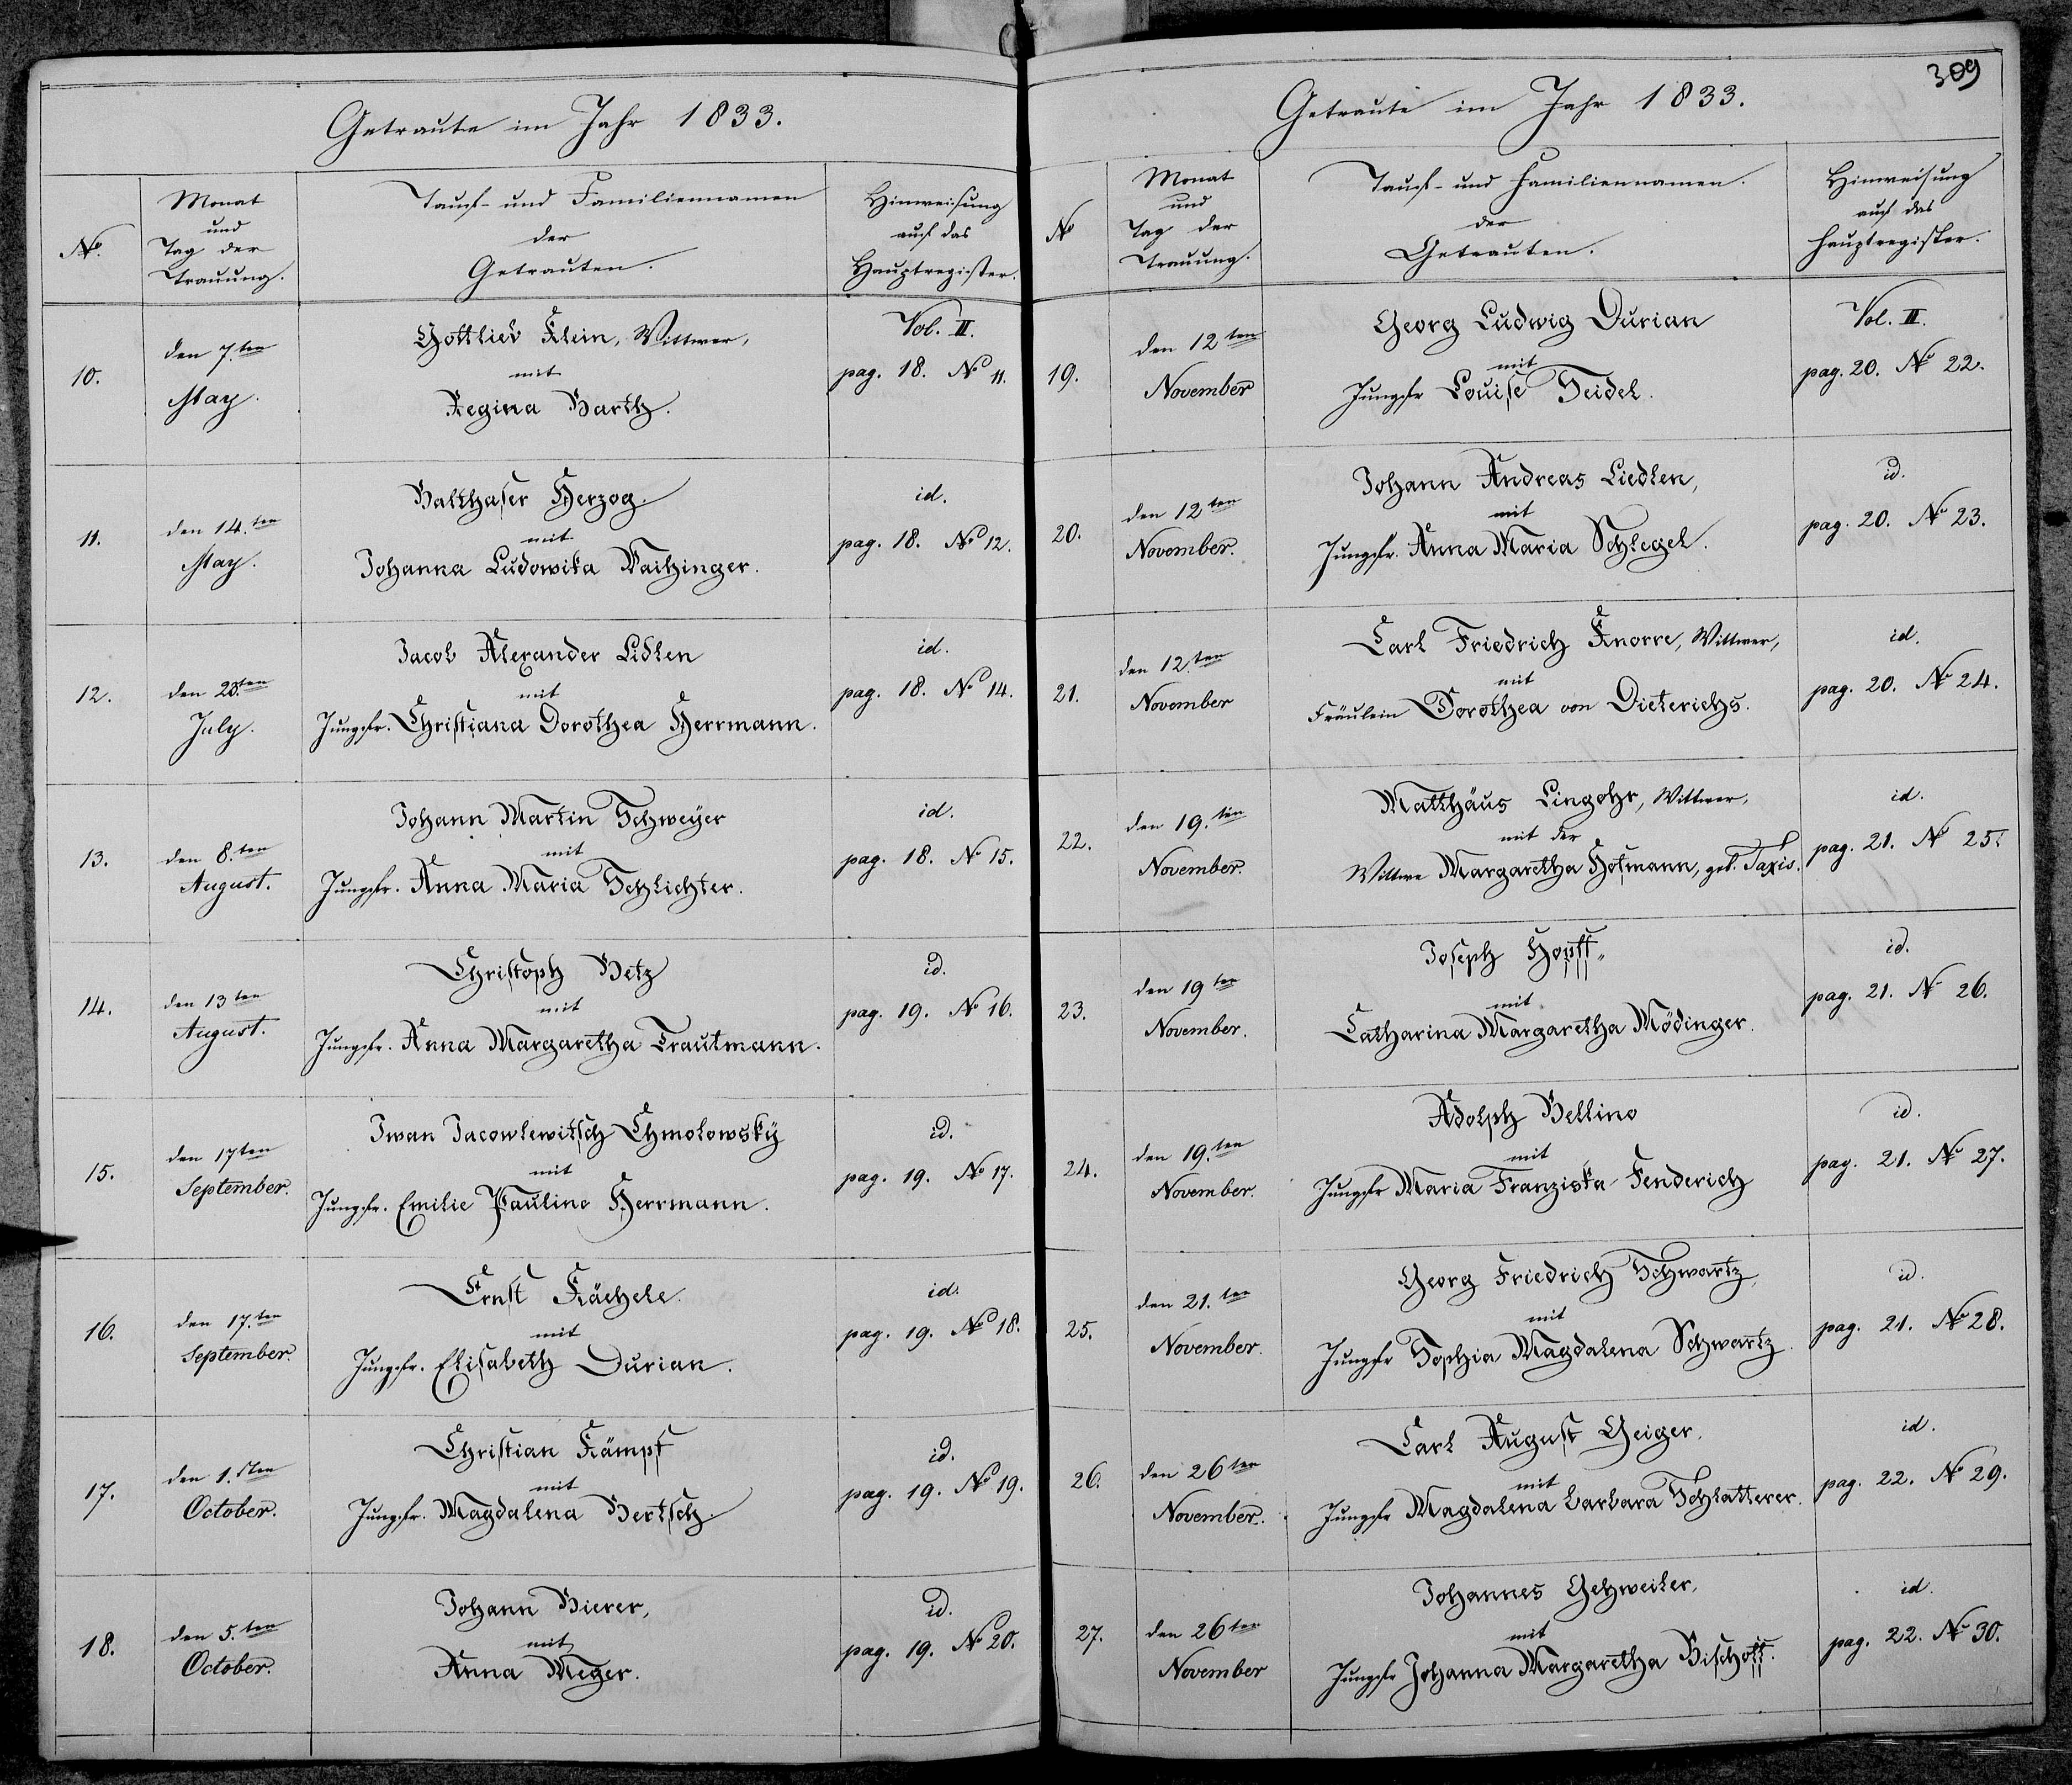 Getraute im Jahr 1833.
No.
Monat
und
Tag der
Trauung.
Tauf- und Familiennamen
der
Getrauten.
Hinweisung
auf das
Hauptregister.
10.
den 7.ten
May.
Gottlieb Klein, Wittwer,
mit
Regina Barth.
Vol. II.
pag. 18. No 11.
11.
den 14.ten
May.
Balthaser Herzog.
mit
Johanna Ludowika Vaihinger.
id.
pag. 18. No 12.
12.
den 23.ten
July.
Jacob Alexander Lidlen
mit
Jungfr. Christiana Dorothea Herrmann.
id.
pag. 18. No 14.
13.
den 8.ten
August.
Johann Martin Schweÿer
mit
Jungfr. Anna Maria Schlichter.
id.
pag. 18. No 15.
14.
den 13ten
August.
Christoph Betz
mit
Jungfr. Anna Margaretha Trautmann.
id.
pag. 19. No 16.
15.
den 17ten
September.
Iwan Jacowlewitsch Chmolowskÿ
mit
Jungfr. Emilie Pauline Herrmann.
id.
pag. 19. No 17.
16.
den 17.ten
September.
Ernst Kächele.
mit
Jungfr. Elisabeth Durian.
id.
pag. 19. No 18.
17.
den 1.sten
October.
Christian Kämpf
mit
Jungfr. Magdalena Bertsch.
id.
pag. 19. No 19.
18.
den 5.ten
October.
Johann Bierer,
mit
Anna Meger.
id.
pag. 19. No 20.
309
Getraute im Jahr 1833.
No
Monat
und
Tag der
Trauung.
Tauf- und Familiennamen.
der
Getrauten.
Hinweisung
auf das
Hauptregister.
19.
den 12ten
November
Georg Ludwig Durian
mit
Jungfr Louise Seidel.
Vol. II.
pag. 20. No 22.
20.
den 12ten
November.
Johann Andreas Liedlen,
mit
Jungfr. Anna Maria Schlegel.
id.
pag. 20. No 23.
21.
den 12.ten
November
Carl Friedrich Knorre, Wittwer,
mit
Fräulein Dorothea von Dieterichs.
id.
pag. 20. No 24.
22.
den 19.ten
November.
Matthäus Lingohr, Wittwer,
mit der
Wittwe Margaretha Hofmann, geb. Taxis.
id.
pag. 21. No 25.
23.
den 19ten
November.
Joseph Hopff,
mit
Catharina Margaretha Mödinger.
id.
pag. 21. No 26.
24.
den 19.ten
November.
Adolph Bellino
mit
Jungfr Maria Franziska Fenderich
id.
pag. 21. No 27.
25.
den 21.ten
November.
Georg Friedrich Schwartz,
mit
Jungfr Sophia Magdalena Schwartz.
id.
pag. 21. No 28.
26.
den 26ten
November.
Carl August Geiger,
mit
Jungfr Magdalena barbara Schlatterer.
id.
pag. 22. No 29.
27.
den 26ten
November
Johannes Gehweiler,
mit
Jungfr Johanna Margaretha Bischoff.
id.
pag. 22. No 30.